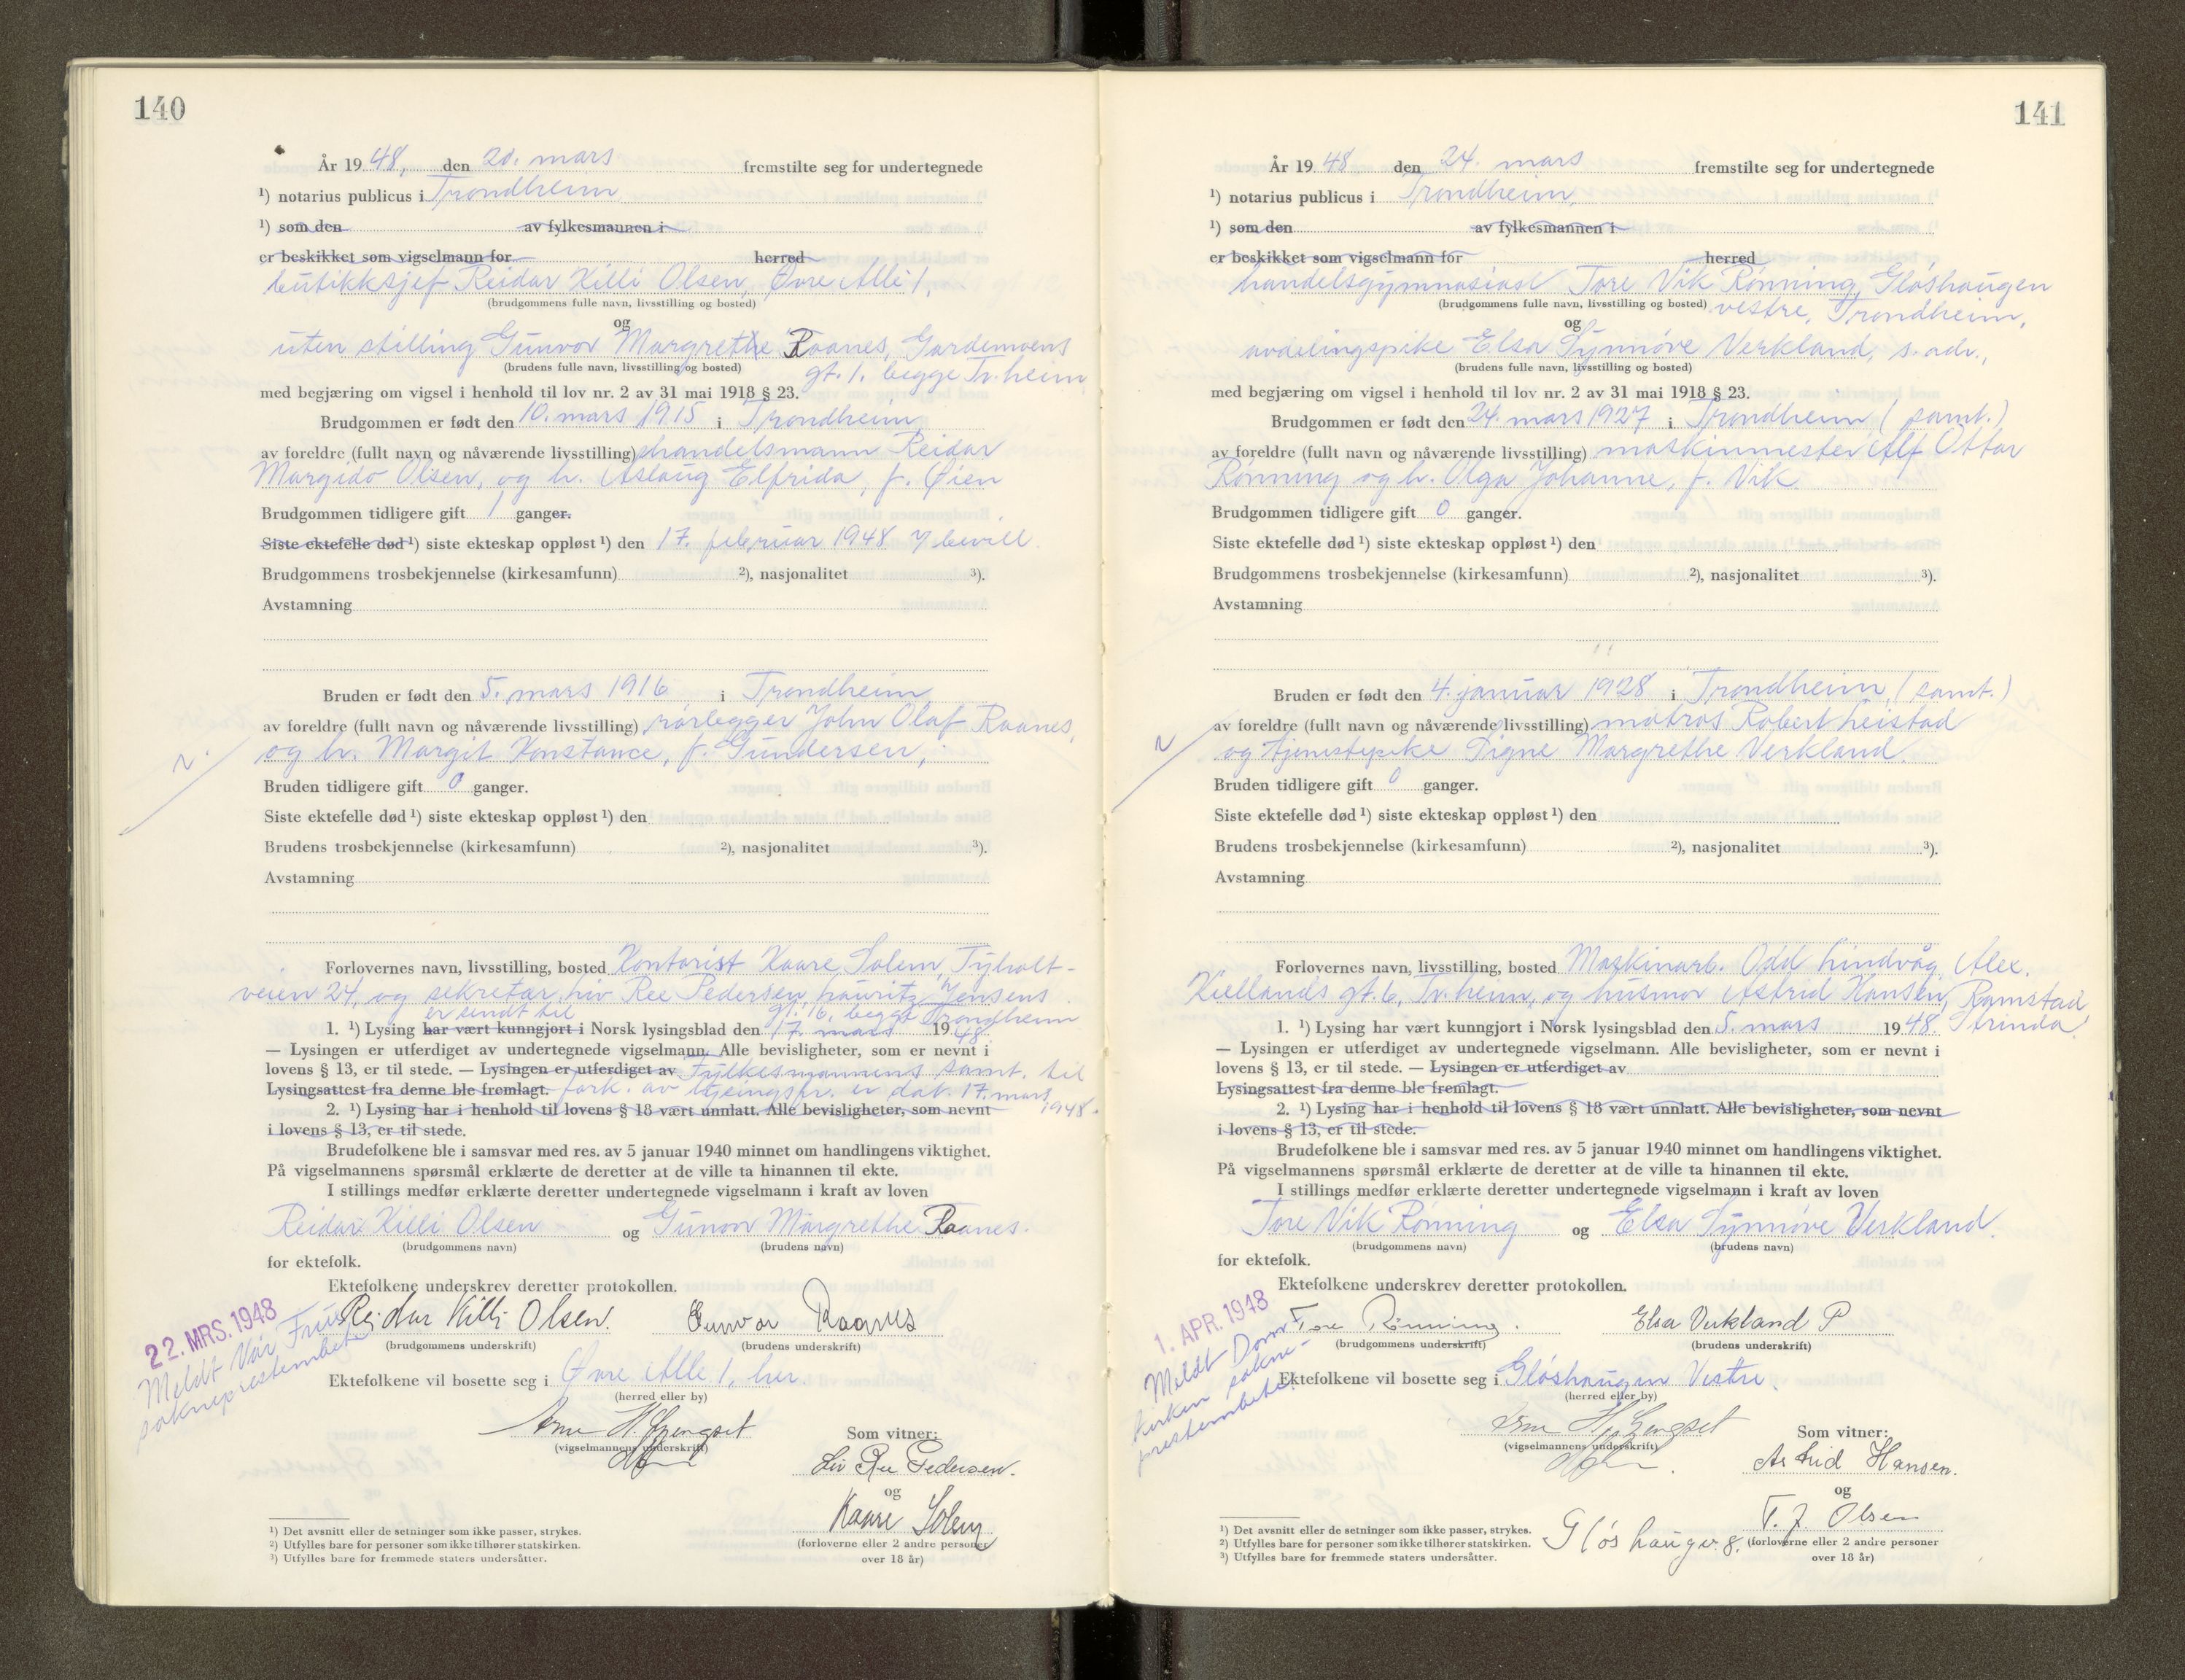 140
År 1948, den 20. mars fremstilte seg for undertegnede
¹) notarius publicus i Trondheim
¹) som den av fylkesmannen i
er beskikket som vigselmann for herred
butikksjef Reidar Killi Olsen, Øvre Allé 1,
(brudgommens fulle navn, livsstilling og bosted)
og
uten stilling Gunvor Margrethe Raanes, Gardemoens
(brudens fulle navn, livsstilling og bosted) gt. 1. begge Tr.heim
med begjæring om vigsel i henhold til lov nr. 2 av 31 mai 1918 § 23.
Brudgommen er født den 10. mars 1915 i Trondheim
av foreldre (fullt navn og nåværende livsstilling) handelsmann Reidar
Margido Olsen, og h. Aslaug Elfrida, f. Øien
Brudgommen tidligere gift 1 ganger.
Siste ektefelle død ¹) siste ekteskap oppløst ¹) den 17. februar 1948 v/ bevill.
Brudgommens trosbekjennelse (kirkesamfunn) ²), nasjonalitet ³).
Avstamning
Bruden er født den 5. mars 1916 i Trondheim
av foreldre (fullt navn og nåværende livsstilling) rørlegger John Olaf Raanes,
og h. Margit Konstance, f. Gundersen,
Bruden tidligere gift 0 ganger.
Siste ektefelle død ¹) siste ekteskap oppløst ¹) den
Brudens trosbekjennelse (kirkesamfunn) ²), nasjonalitet ³).
Avstamning
Forlovernes navn, livsstilling, bosted Kontorist Kaare Solem, Tyholt-
veien 24, og sekretær Liv Ree Pedersen, Lauritz Jensens
er sendt til gt. 16, begge Trondheim
1. ¹) Lysing har vært kunngjort i Norsk lysingsblad den 17. mars 1948.
— Lysingen er utferdiget av undertegnede vigselmann. Alle bevisligheter, som er nevnt i
lovens § 13, er til stede. — Lysingen er utferdiget av Fylkesmannens samt. til
Lysingsattest fra denne ble fremlagt. fork. av lysingsfr. er dat. 17. mars
1948.
2. ¹) Lysing har i henhold til lovens § 18 vært unnlatt. Alle bevisligheter, som nevnt
i lovens § 13, er til stede.
Brudefolkene ble i samsvar med res. av 5 januar 1940 minnet om handlingens viktighet.
På vigselmannens spørsmål erklærte de deretter at de ville ta hinannen til ekte.
I stillings medfør erklærte deretter undertegnede vigselmann i kraft av loven
Reidar Killi Olsen og Gunvor Margrethe Raanes.
(brudgommens navn) (brudens navn)
for ektefolk.
Ektefolkene underskrev deretter protokollen.
22. MRS. 1948
Meldt Vår Frue
sokneprestembete
Reidar Killi Olsen. Gunvor Raanes
(brudgommens underskrift) (brudens underskrift)
Ektefolkene vil bosette seg i Øvre Allé 1, her.
(herred eller by)
Arne H.
(vigselmannens underskrift)
Som vitner:
Liv Ree Pedersen.
og
Kaare Solem
(forloverne eller 2 andre personer
over 18 år)
¹) Det avsnitt eller de setninger som ikke passer, strykes.
²) Utfylles bare for personer som ikke tilhører statskirken.
³) Utfylles bare for fremmede staters undersåtter.
141
År 1948 den 24. mars fremstilte seg for undertegnede
¹) notarius publicus i Trondheim,
¹) som den av fylkesmannen i
er beskikket som vigselmann for herred
handelsgymnasiast Tore Vik Rønning, Gløshaugen
(brudgommens fulle navn, livsstilling og bosted) vestre, Trondheim,
og
avdelingspike Elsa Synnøve Verkland, s. adr.,
(brudens fulle navn, livsstilling og bosted)
med begjæring om vigsel i henhold til lov nr. 2 av 31 mai 1918 § 23.
Brudgommen er født den 24. mars 1927 i Trondheim (samt.)
av foreldre (fullt navn og nåværende livsstilling) maskinmester Alf Ottar
Rønning og h. Olga Johanne, f. Vik.
Brudgommen tidligere gift 0 ganger.
Siste ektefelle død ¹) siste ekteskap oppløst ¹) den
Brudgommens trosbekjennelse (kirkesamfunn) ²), nasjonalitet ³).
Avstamning
Bruden er født den 4. januar 1928 i Trondheim (samt.)
av foreldre (fullt navn og nåværende livsstilling) matros Robert Leistad
og tjenestepike Signe Margrethe Verkland.
Bruden tidligere gift 0 ganger.
Siste ektefelle død ¹) siste ekteskap oppløst ¹) den
Brudens trosbekjennelse (kirkesamfunn) ²), nasjonalitet ³).
Avstamning
Forlovernes navn, livsstilling, bosted Maskinarb. Odd Lindvåg, Alex.
Kiellands gt. 6, Tr.heim, og husmor Astrid Hansen, Ramstad
Strinda
1. ¹) Lysing har vært kunngjort i Norsk lysingsblad den 5. mars 1948.
— Lysingen er utferdiget av undertegnede vigselmann. Alle bevisligheter, som er nevnt i
lovens § 13, er til stede. — Lysingen er utferdiget av
Lysingsattest fra denne ble fremlagt.
2. ¹) Lysing har i henhold til lovens § 18 vært unnlatt. Alle bevisligheter, som nevnt
i lovens § 13, er til stede.
Brudefolkene ble i samsvar med res. av 5 januar 1940 minnet om handlingens viktighet.
På vigselmannens spørsmål erklærte de deretter at de ville ta hinannen til ekte.
I stillings medfør erklærte deretter undertegnede vigselmann i kraft av loven
Tore Vik Rønning og Elsa Synnøve Verkland.
(brudgommens navn) (brudens navn)
for ektefolk.
Ektefolkene underskrev deretter protokollen.
1. APR. 1948
Meldt Dom-
kirken sokne-
prestembete.
Tore Rønning. Elsa Verkland R
(brudgommens underskrift) (brudens underskrift)
Ektefolkene vil bosette seg i Gløshaugen Vestre.
(herred eller by)
Arne H.
(vigselmannens underskrift)
Som vitner:
Astrid Hansen.
og
T. J. Olsen
Gløshaugv. 8.
(forloverne eller 2 andre personer
over 18 år)
¹) Det avsnitt eller de setninger som ikke passer, strykes.
²) Utfylles bare for personer som ikke tilhører statskirken.
³) Utfylles bare for fremmede staters undersåtter.